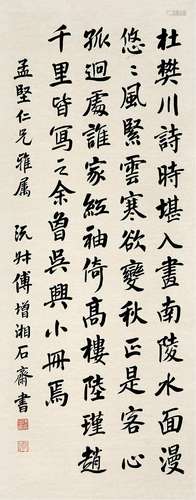 杜樊川詩時堪入畫南陵水面漫
悠〻風緊雲寒欲變秋正是客心
孤迴處誰家紅袖倚高樓陸瑾趙
千里皆寫之余曾吳興小冊焉
孟堅仁兄雅屬 沅叔傅增湘石齋書